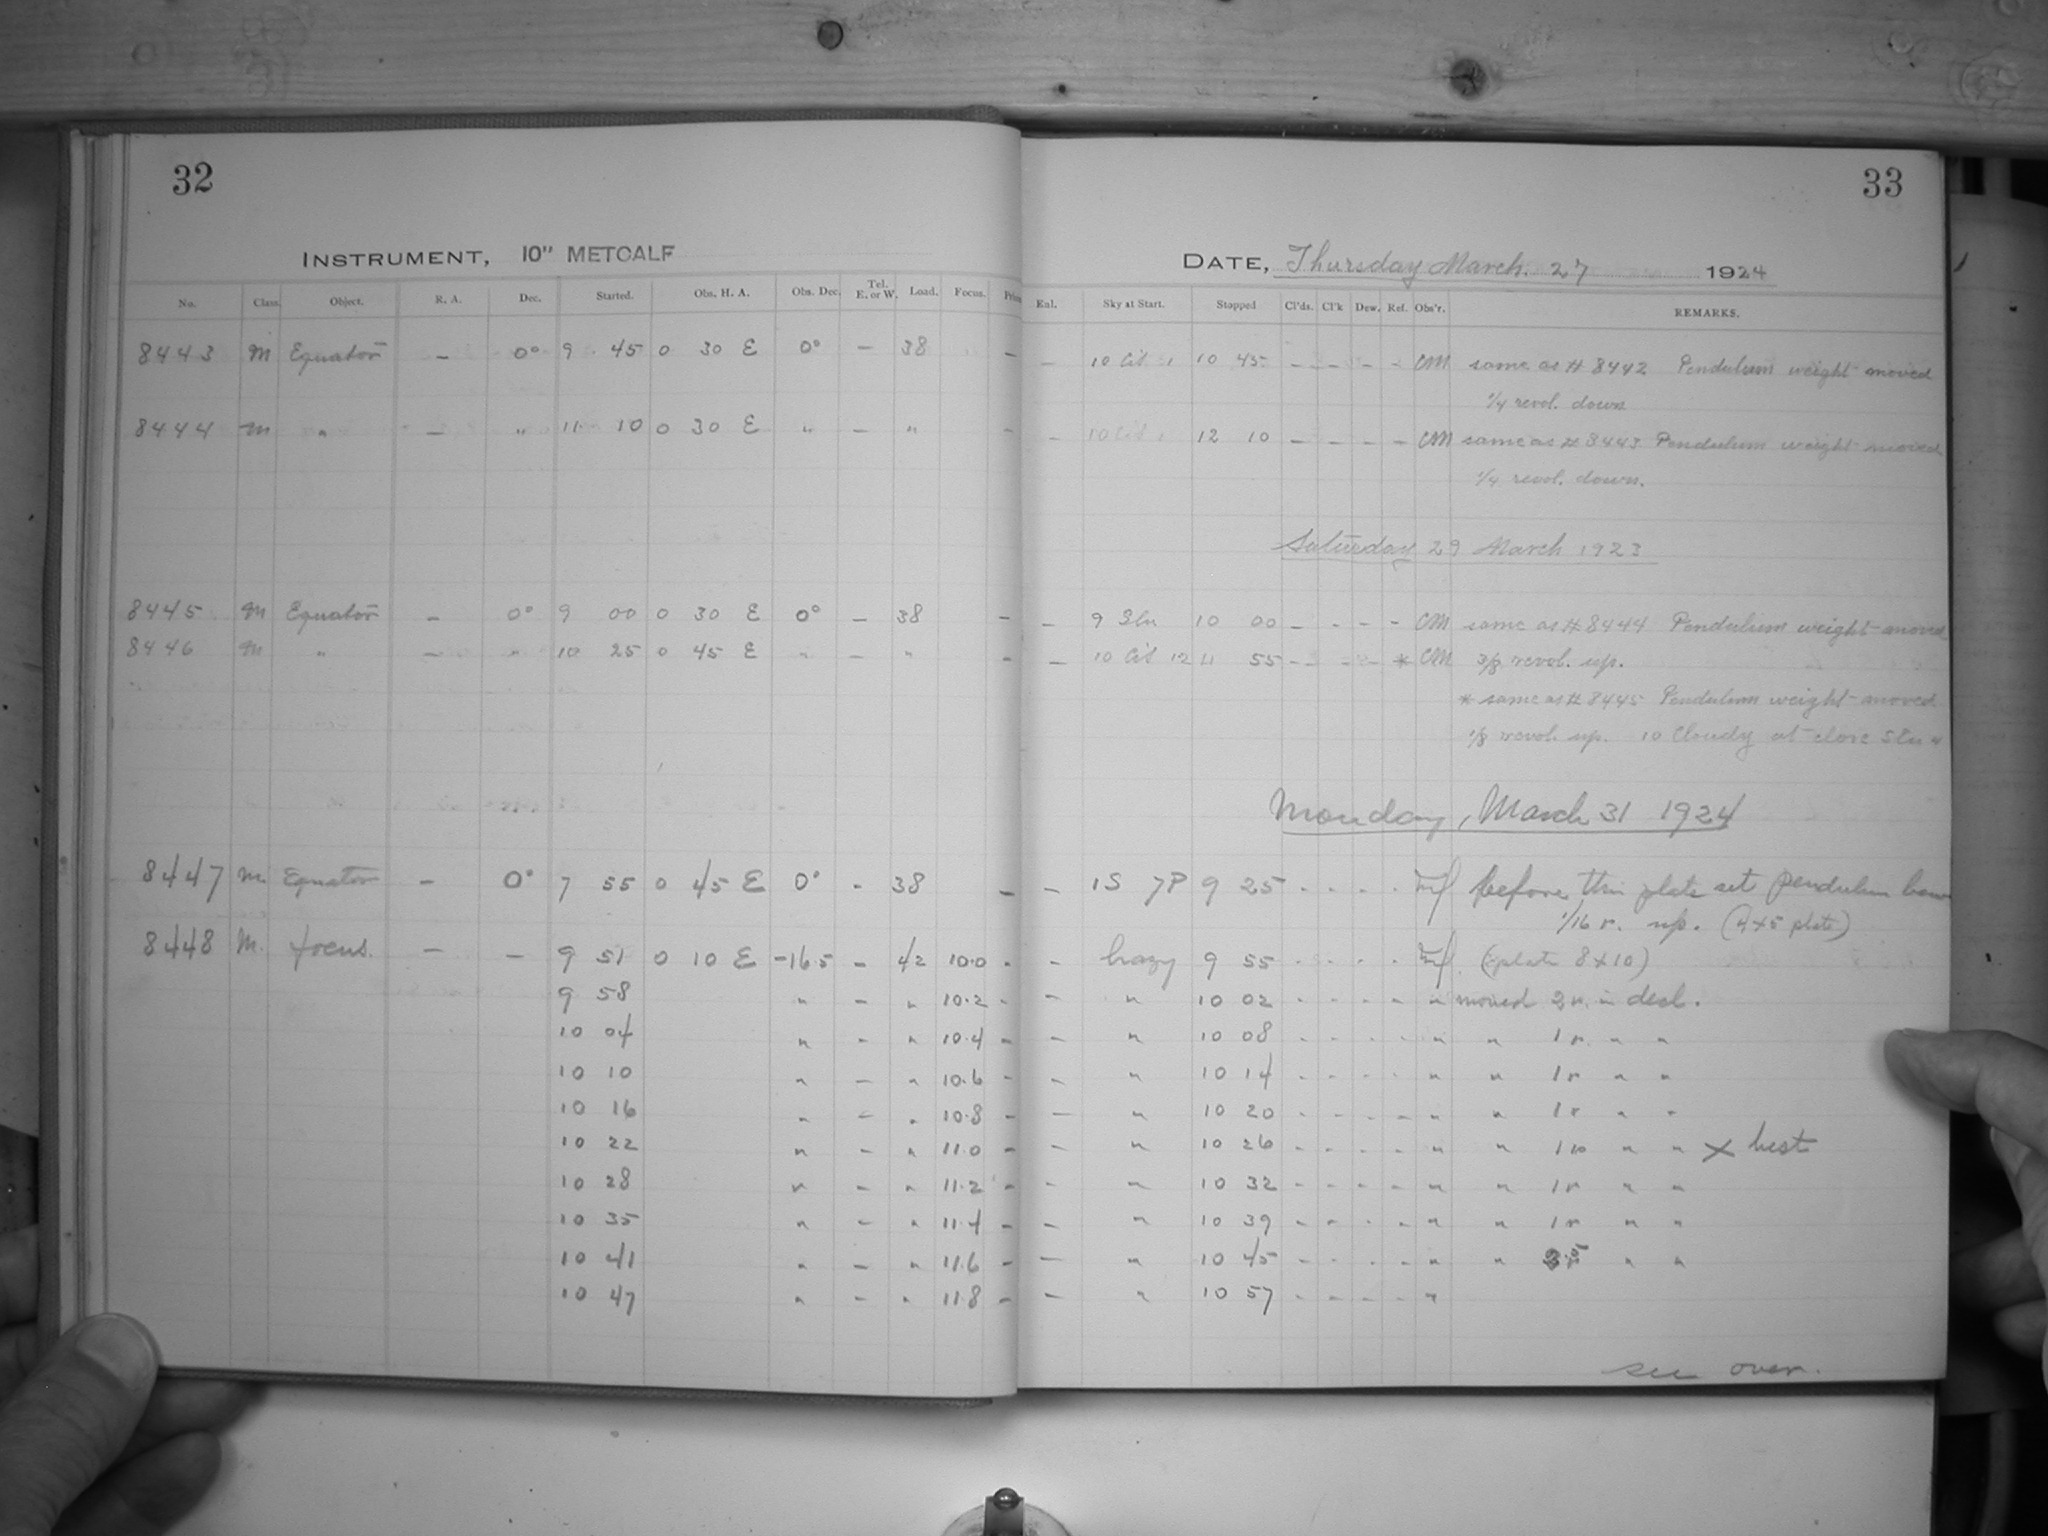 32
33
INSTRUMENT, 10" METCALF
DATE, Thursday March. 27 1924
No. Class. Object. R. A. Dec. Started. Obs. H. A. Obs. Dec. Tel. E. or W. Load. Focus. Enl. Sky at Start. Stopped Cl'ds. Cl'k Dew. Ref. Obs'r. REMARKS.
8443 M Equator – 0° 9 45 0 30 E 0° – 38 – – 10 1 10 45 – – – – CM same as # 8442 Pendulum weight moved
1/4 revol. down
8444 M " – " 11 10 0 30 E " – " – – 10 12 10 – – – – CM same as # 8443 Pendulum weight moved
1/4 revol. down.
Saturday 29 March 1923
8445 M Equator – 0° 9 00 0 30 E 0° – 38 – – 9 10 00 – – – – CM same as # 8444 Pendulum weight moved
8446 M " – " 10 25 0 45 E " – " – – 10 12 11 55 – – – – * CM 3/8 revol. up.
* same as # 8445 Pendulum weight moved
1/8 revol. up. 10 Cloudy at close
Monday, March 31 1924
8447 M. Equator – 0° 7 55 0 45 E 0° - 38 – – 1S 7P 9 25 - - - - before this plate set pendulum
1/16 r. up. (4x5 plate)
8448 M. focus. – – 9 51 0 10 E -16.5 – 42 10.0 - - hazy 9 55 - - - - (plate 8x10)
9 58 " – " 10.2 - – " 10 02 - - - - " moved 2 r. in decl.
10 04 " – " 10.4 – – " 10 08 - - - - " " 1 r. " "
10 10 " – " 10.6 - – " 10 14 - - - - " " 1 r " "
10 16 " – " 10.8 - – " 10 20 - - - - " " 1 r " "
10 22 " – " 11.0 – – " 10 26 - - - - " " 1 r " " X best
10 28 " – " 11.2 - – " 10 32 - - - - " " 1 r " "
10 35 " – " 11.4 – – " 10 39 - - - - " " 1 r " "
10 41 " – " 11.6 – – " 10 45 - - - - " " " "
10 47 " – " 11.8 – – " 10 57 - - - - "
see over.